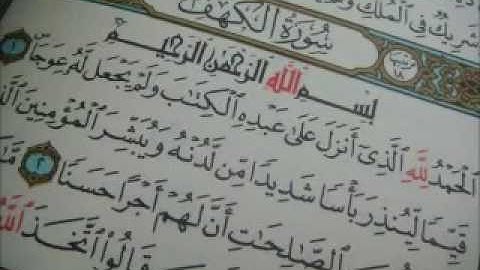 شَرِيكٌ فِي ٱلْمُلْكِ
سُورَةُ ٱلْكَهْفِ ١٨
بِسْمِ ٱللَّهِ ٱلرَّحْمَٰنِ ٱلرَّحِيمِ
ٱلْحَمْدُ لِلَّهِ ٱلَّذِىٓ أَنزَلَ عَلَىٰ عَبْدِهِ ٱلْكِتَٰبَ وَلَمْ يَجْعَل لَّهُۥ عِوَجَاۜ ١
قَيِّمًا لِّيُنذِرَ بَأْسًا شَدِيدًا مِّن لَّدُنْهُ وَيُبَشِّرَ ٱلْمُؤْمِنِينَ
ٱلصَّٰلِحَٰتِ أَنَّ لَهُمْ أَجْرًا حَسَنًا ٢
قَالُوا۟ ٱتَّخَذَ ٱللَّهُ